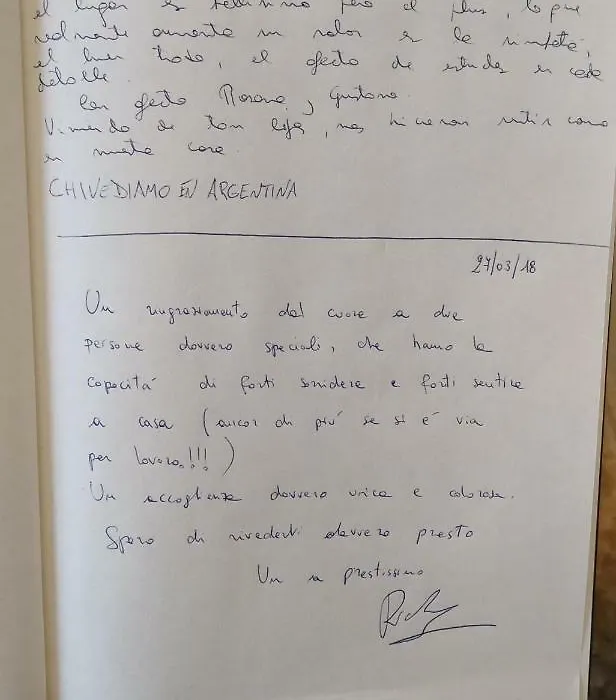 el lugar es bellísimo pero el plus, lo que
realmente aumenta su valor es la simpatía,
el buen trato, el afecto de ustedes en cada
detalle.
Con afecto Rosana y Gustavo.
Viniendo de tan lejos, nos hicieron sentir como
en nuestra casa.
CHIVEDIAMO EN ARGENTINA
27/03/18
Un ringraziamento dal cuore a due
persone davvero speciali, che hanno la
capacità di farti sorridere e farti sentire
a casa (ancor di più se si è via
per lavoro!!!)
Un accoglienza davvero unica e calorosa.
Spero di rivederti davvero presto
Un a prestissimo